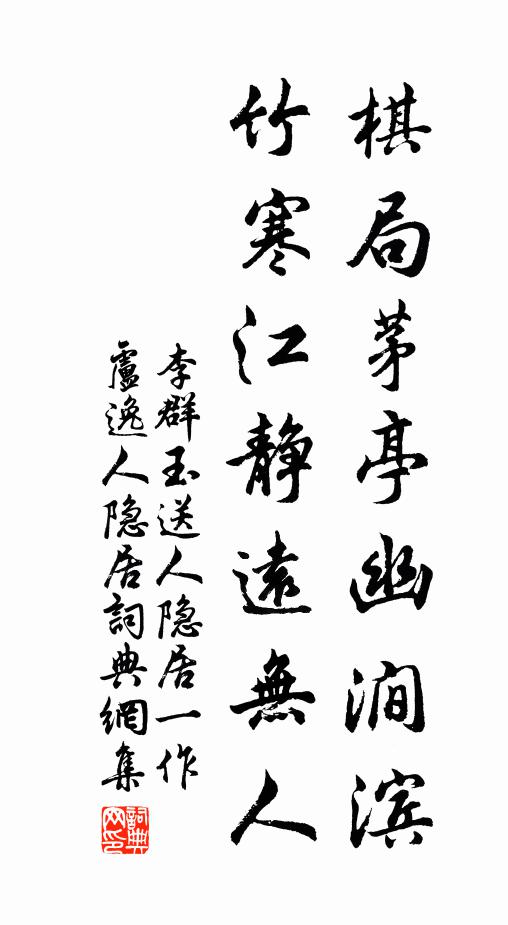 棋局茅亭幽澗滨
竹寒江静遠無人
李群玉送人隐居一作
盧逸人隐居詞典網集
詞典网印